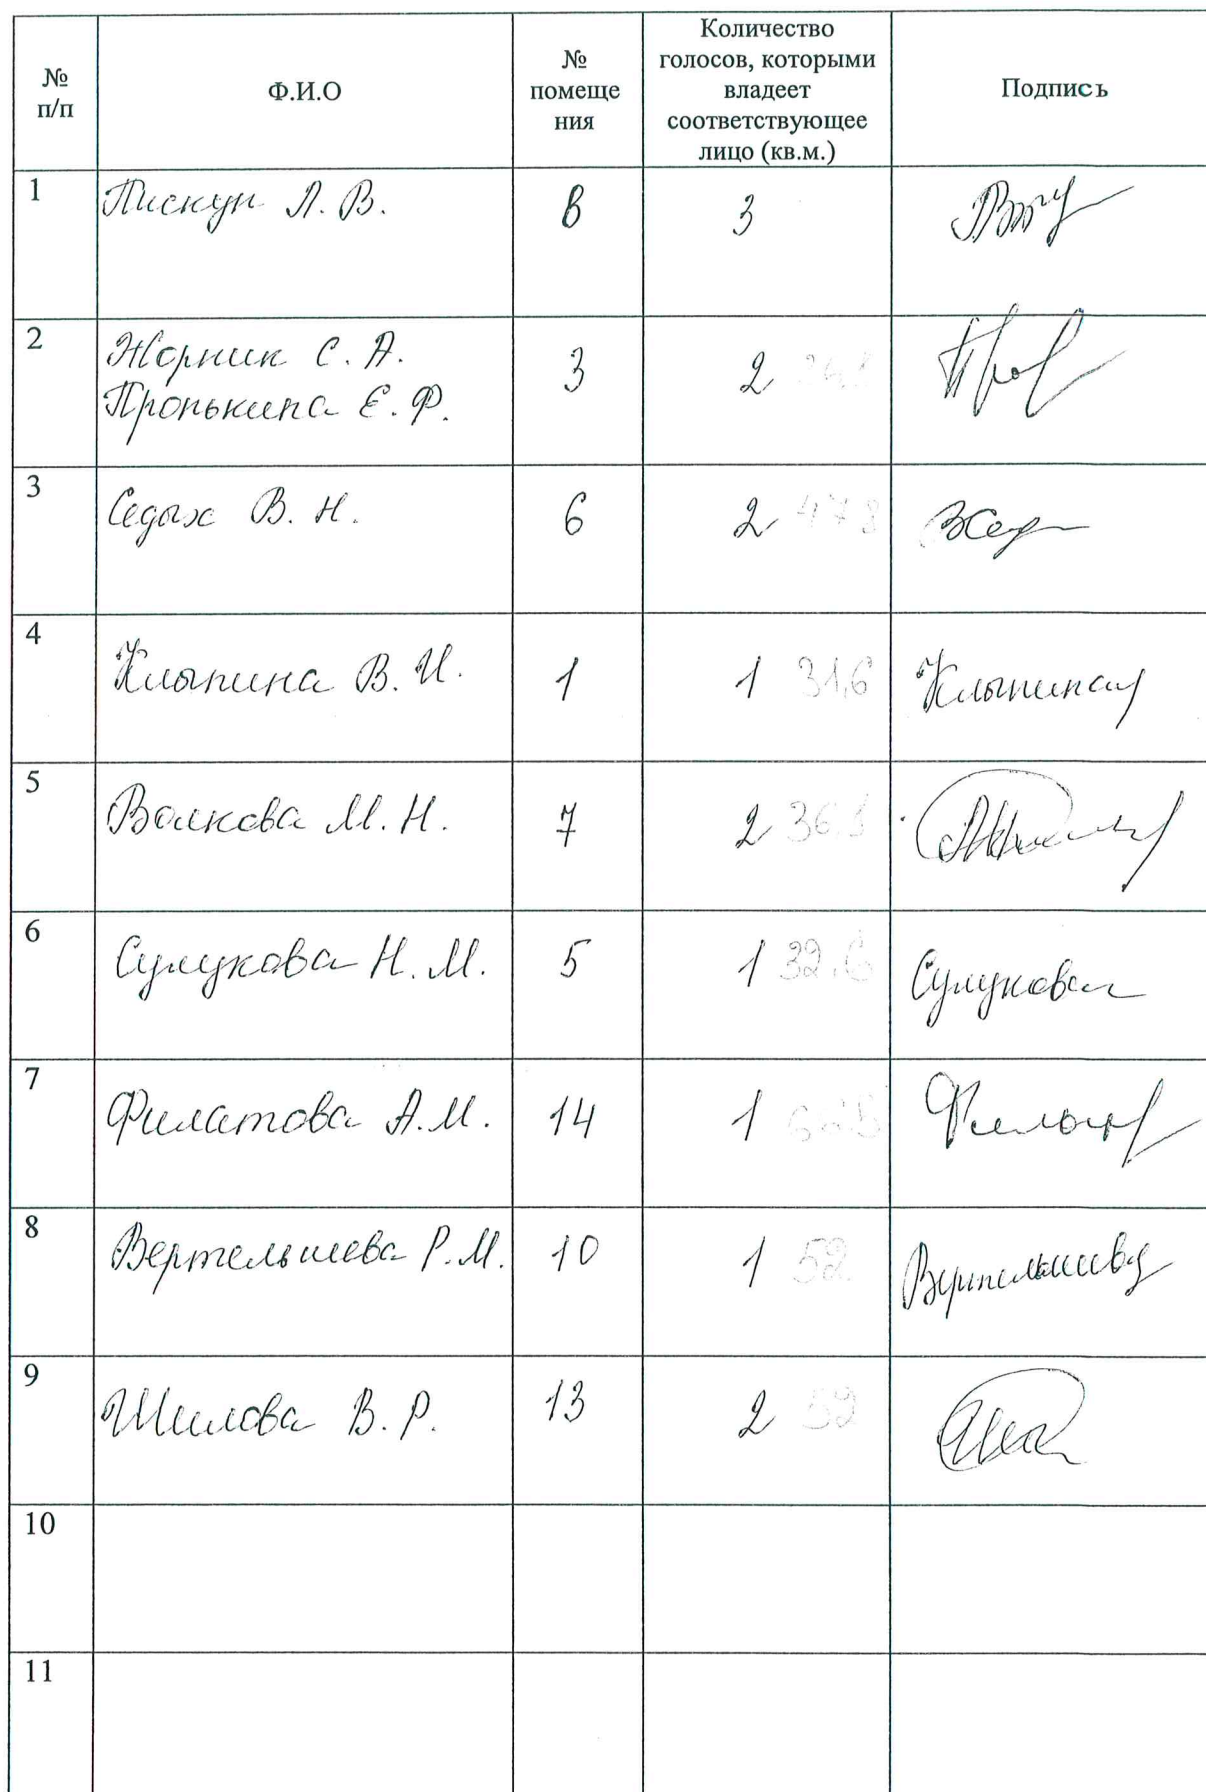 № п/п Ф.И.О № помеще ния Количество голосов, которыми владеет соответствующее лицо (кв.м.) Подпись
1 Пискун Л. В. 8 3
2 Жорник С. А. 3 2
Пронькина Е. Ф.
3 Седых В. Н. 6 2 47,8
4 Клыпина В. И. 1 1 31,6 Клыпина
5 Волкова М. Н. 7 2
6 Сулукова Н. М. 5 1 32,6 Сулукова
7 Филатова А. М. 14 1
8 Вертельшева Р. М. 10 1 52 Вертельшева
9 Шилова В. Р. 13 2 52
10
11